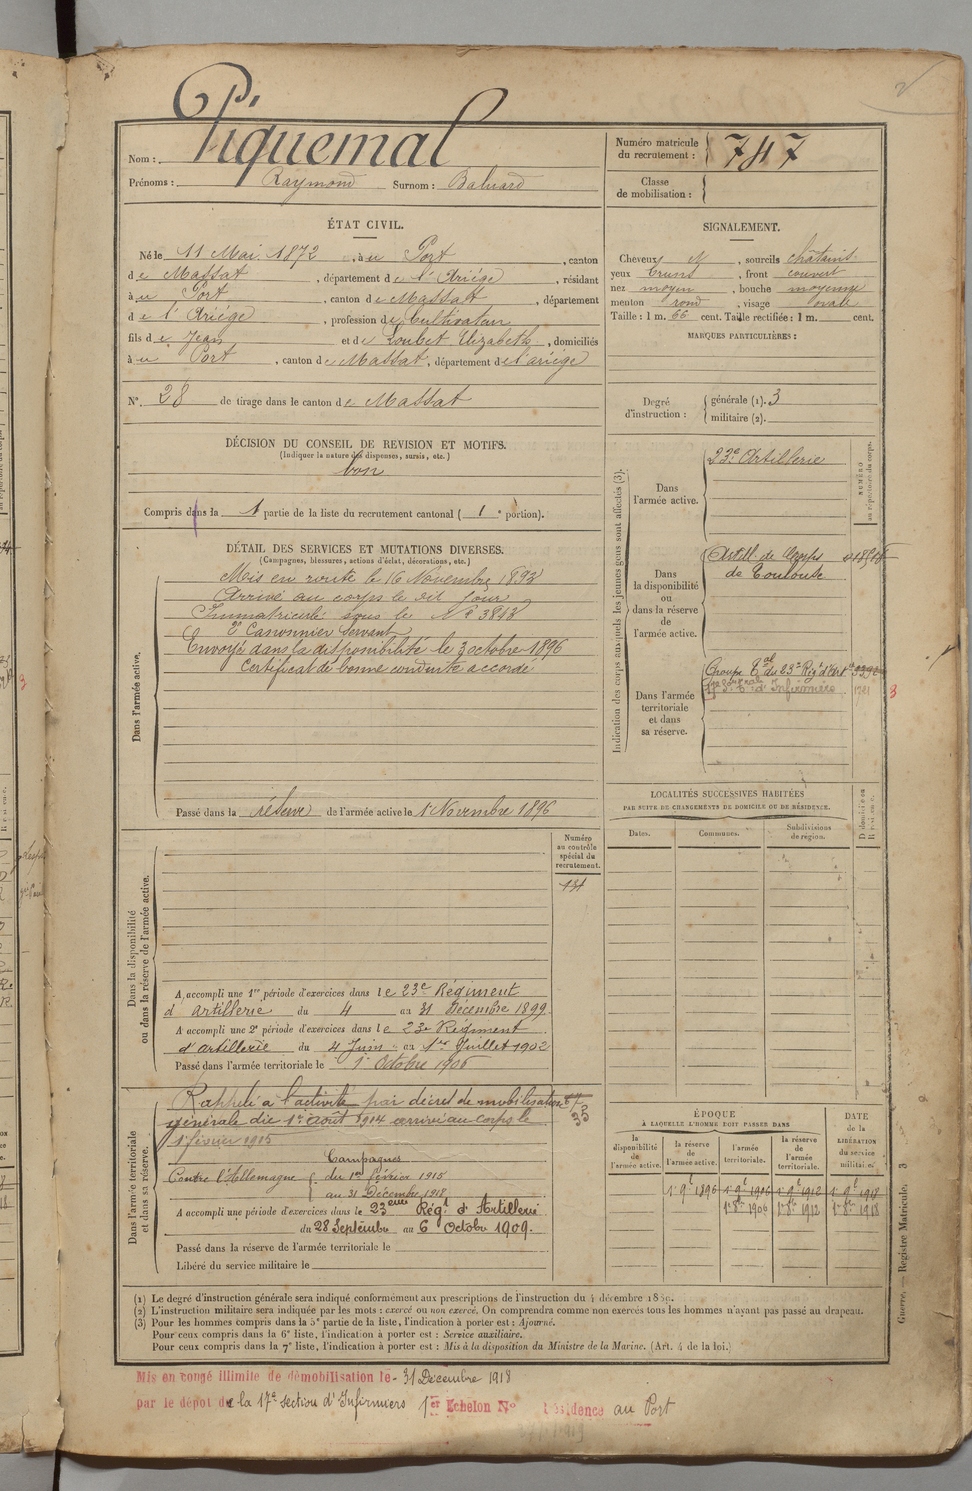 Nom : Piquemal
Prénoms : Raymond Surnom : Baluard
Numéro matricule du recrutement : 747
Classe de mobilisation :
ÉTAT CIVIL.
Né le 11 Mai 1872, à u Port, canton
de Massat, département de l'Ariége, résidant
à u Port, canton de Massat, département
de l'Ariége, profession de Cultivateur
fils de Jean et de Loubet Elizabeth, domiciliés
à u Port, canton de Massat, département de l'ariége
N°. 28 de tirage dans le canton de Massat
SIGNALEMENT.
Cheveux N, sourcils châtains
yeux bruns, front couvert
nez moyen, bouche moyenne
menton rond, visage ovale
Taille : 1 m. 66 cent. Taille rectifiée : 1 m. cent.
MARQUES PARTICULIÈRES :
Degré d'instruction : générale (1). 3
militaire (2).
DÉCISION DU CONSEIL DE REVISION ET MOTIFS.
(Indiquer la nature des dispenses, sursis, etc.)
bon
Compris dans la 1 partie de la liste du recrutement cantonal ( 1 e portion).
DÉTAIL DES SERVICES ET MUTATIONS DIVERSES.
(Campagnes, blessures, actions d'éclat, décorations, etc.)
Dans l'armée active.
Mis en route le 16 Novembre 1893
Arrivé au corps le dit jour
Immatriculé sous le N° 3843
2e Canonnier Servant
Envoyé dans la disponibilité le 3 octobre 1896
Certificat de bonne conduite accordé
Passé dans la réserve de l'armée active le 1er Novembre 1896
Indication des corps auxquels les jeunes gens sont affectés (3).
NUMÉRO au répertoire du corps.
Dans l'armée active.
23e Artillerie
Dans la disponibilité ou dans la réserve de l'armée active.
Artill. de Corps
de Toulouse
Dans l'armée territoriale et dans sa réserve.
Groupe Tal du 23e Régt d'Art
17e Son d'Infirmiers
LOCALITÉS SUCCESSIVES HABITÉES
PAR SUITE DE CHANGEMENTS DE DOMICILE OU DE RÉSIDENCE.
Dates. Communes. Subdivisions de région. D. domicile ou R. résidence.
Dans la disponibilité ou dans la réserve de l'armée active.
Numéro au contrôle spécial du recrutement.
A accompli une 1re période d'exercices dans le 23e Régiment
d'artillerie du 4 au 31 Décembre 1899
A accompli une 2e période d'exercices dans le 23e Régiment
d'artillerie du 4 Juin au 1er Juillet 1902
Passé dans l'armée territoriale le 1er Octobre 1906
Dans l'armée territoriale et dans sa réserve.
Rappelé à l'activité par décret de mobilisation
générale du 1er août 1914 arrivé au corps le
1er février 1915
Campagnes
Contre l'Allemagne du 1er février 1915
au 31 Décembre 1918
A accompli une période d'exercices dans le 23eme Régt d'Artillerie
du 28 Septembre au 6 Octobre 1909.
Passé dans la réserve de l'armée territoriale le
Libéré du service militaire le
ÉPOQUE
À LAQUELLE L'HOMME DOIT PASSER DANS
la disponibilité de l'armée active. la réserve de l'armée active. l'armée territoriale. la réserve de l'armée territoriale.
DATE de la LIBÉRATION du service militaire
1er 9bre 1896 1er 9bre 1906 1er 9bre 1912 1er 9bre 1918
1er 8bre 1906 1er 8bre 1912 1er 8bre 1918
(1) Le degré d'instruction générale sera indiqué conformément aux prescriptions de l'instruction du 4 décembre 1889.
(2) L'instruction militaire sera indiquée par les mots : exercé ou non exercé. On comprendra comme non exercés tous les hommes n'ayant pas passé au drapeau.
(3) Pour les hommes compris dans la 5e partie de la liste, l'indication à porter est : Ajourné.
Pour ceux compris dans la 6e liste, l'indication à porter est : Service auxiliaire.
Pour ceux compris dans la 7e liste, l'indication à porter est : Mis à la disposition du Ministre de la Marine. (Art. 4 de la loi.)
Guerre. — Registre Matricule. 3
Mis en congé illimité de démobilisation le 31 Décembre 1918
par le dépôt de la 17e section d'Infirmiers 1er Echelon No Résidence au Port